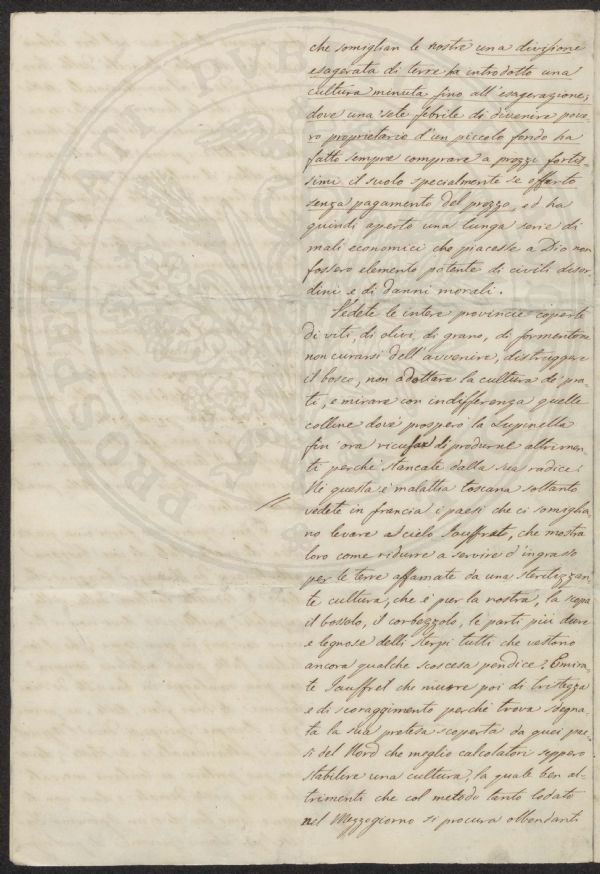 che somiglian le nostre una divisione
esagerata di terre ha introdotto una
cultura minuta fino all'esagerazione;
dove una sete febrile di divenire pove-
ro proprietario d'un piccolo fondo ha
fatto sempre comprare a prezzi fortis-
simi il suolo specialmente se offerto
senza pagamento del prezzo, ed ha
quindi aperto una lunga serie di
mali economici che piacesse a Dio non
fossero elemento potente di civili disor-
dini e di danni morali.
Vedete le intere provincie coperte
di viti, di olivi, di grano, di formentone
non curarsi dell'avvenire, distruggere
il bosco, non adottare la cultura de' pra-
ti, e mirare con indifferenza quelle
colline dove prosperò la Lupinella
fin'ora ricusar di produrne altrimen-
ti perché stancate dalla sua radice.
Né questa è malattia toscana soltanto
vedete in francia i paesi che ci somiglia-
no levare a cielo Jauffret, che mostra
loro come ridurre a servire d'ingrasso
per le terre affamate da una sterilizzan-
te cultura, che è pur la nostra, la scopa
il bossolo, il corbezzolo, le parti più dure
e legnose delli sterpi tutti che vestono
ancora qualche scoscesa pendice; E mira-
te Jauffret che muore poi di tristezza
e di scoraggimento perché trova sdegna-
ta la sua pretesa scoperta da quei pae-
si del Nord che meglio calcolatori seppero
stabilire una cultura, la quale ben al-
trimenti che col metodo tanto lodato
nel Mezzogiorno si procura abbondanti